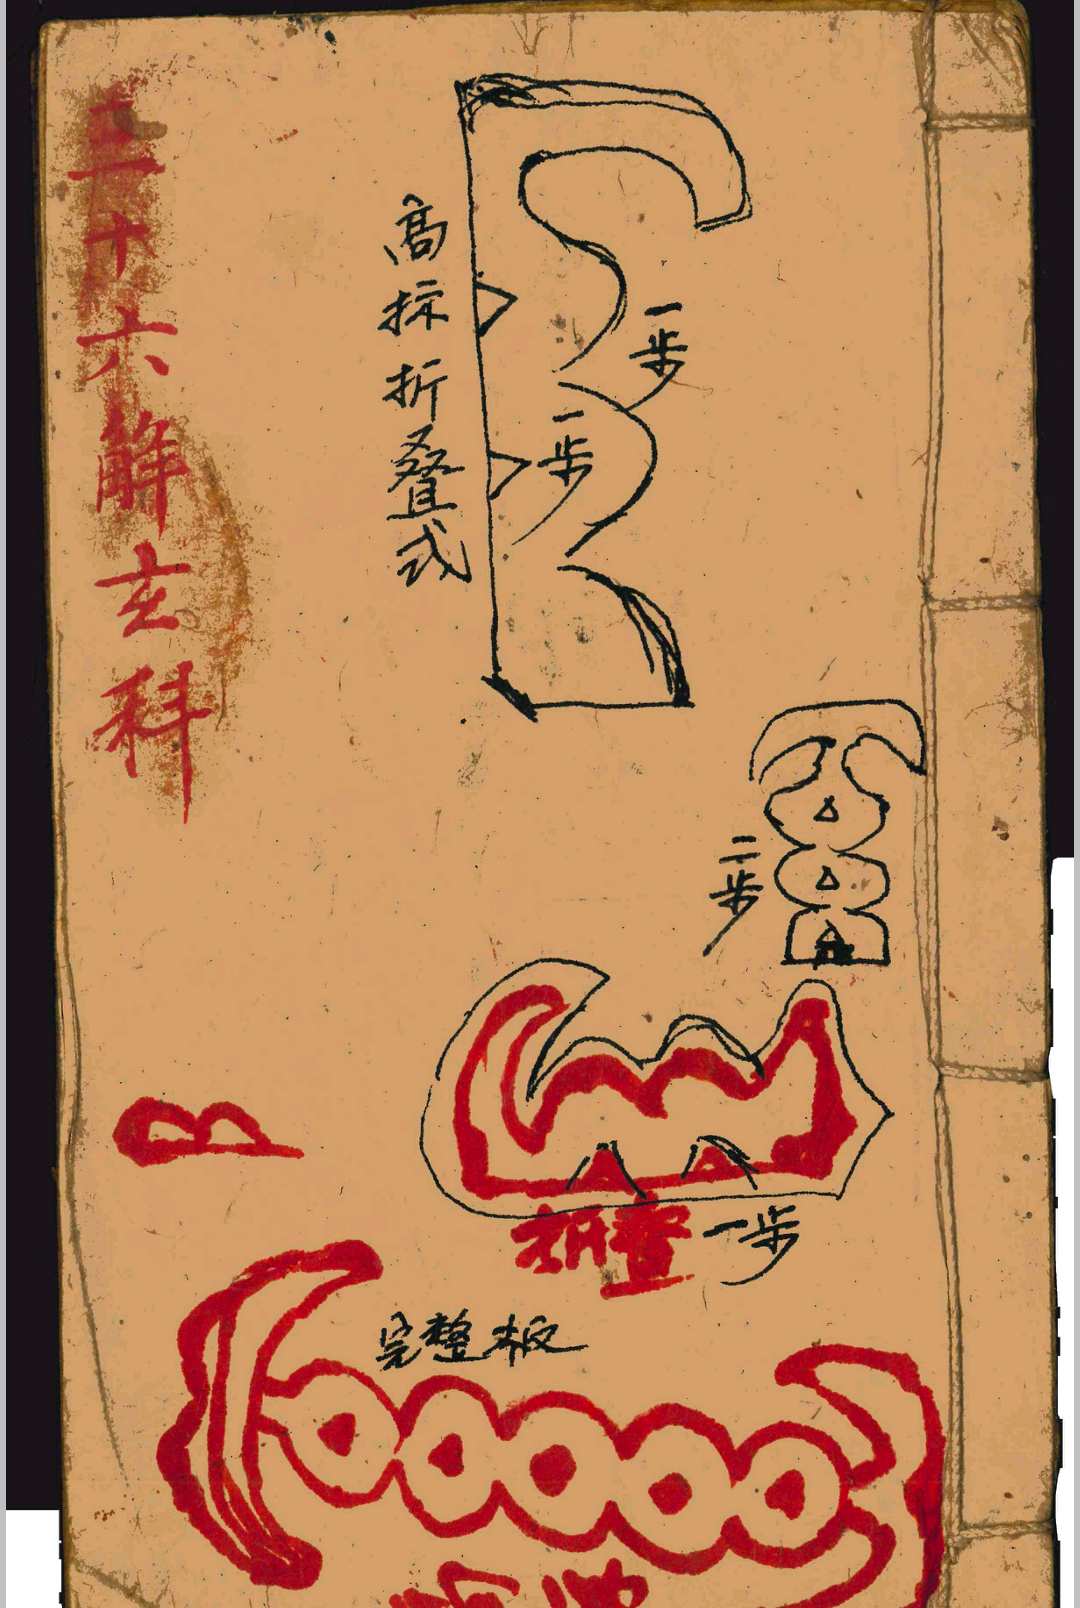 三十六解玄科
高标折叠式
一步
一步
二步
折叠一步
完整板